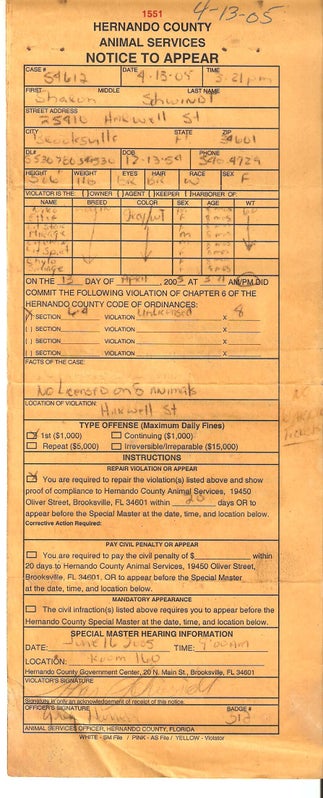 1551
4-13-05
HERNANDO COUNTY
ANIMAL SERVICES
NOTICE TO APPEAR
CASE # DATE TIME
54612 4-13-05 3:21 pm
FIRST MIDDLE LAST NAME
Sharon Schwindt
STREET ADDRESS
25410 Hankwell St
CITY STATE ZIP
Brooksville F 34601
DL# DOB PHONE
12-13-54 540-4729
HEIGHT WEIGHT EYES HAIR RACE SEX
W F
VIOLATOR IS THE: [ ] OWNER [ ] AGENT [ ] KEEPER [ ] HARBORER OF:
NAME BREED COLOR SEX AGE WT
ON THE 13 DAY OF April, 2005 AT AM/PM DID
COMMIT THE FOLLOWING VIOLATION OF CHAPTER 6 OF THE
HERNANDO COUNTY CODE OF ORDINANCES:
SECTION VIOLATION Unlicensed X 8
( ) SECTION VIOLATION X
( ) SECTION VIOLATION X
( ) SECTION VIOLATION X
FACTS OF THE CASE:
No License on 8 Animals
LOCATION OF VIOLATION:
Hankwell St
TYPE OFFENSE (Maximum Daily Fines)
1st ($1,000) Continuing ($1,000)
Repeat ($5,000) Irreversible/Irreparable ($15,000)
INSTRUCTIONS
REPAIR VIOLATION OR APPEAR
You are required to repair the violation(s) listed above and show
proof of compliance to Hernando County Animal Services, 19450
Oliver Street, Brooksville, FL 34601 within 20 days OR to
appear before the Special Master at the date, time, and location below.
Corrective Action Required:
PAY CIVIL PENALTY OR APPEAR
You are required to pay the civil penalty of $ within
20 days to Hernando County Animal Services, 19450 Oliver Street,
Brooksville, FL 34601, OR to appear before the Special Master
at the date, time, and location below.
MANDATORY APPEARANCE
The civil infraction(s) listed above requires you to appear before the
Hernando County Special Master at the date, time, and location below.
SPECIAL MASTER HEARING INFORMATION
DATE: June 16 2005 TIME: 9:00AM
LOCATION: Room 160
Hernando County Government Center, 20 N. Main St., Brooksville, FL
VIOLATOR'S SIGNATURE
Signature is only an acknowledgement of receipt of this notice.
OFFICER'S SIGNATURE BADGE #
ANIMAL SERVICES OFFICER, HERNANDO COUNTY, FLORIDA
WHITE - SM File / PINK - AS File / YELLOW - Violator